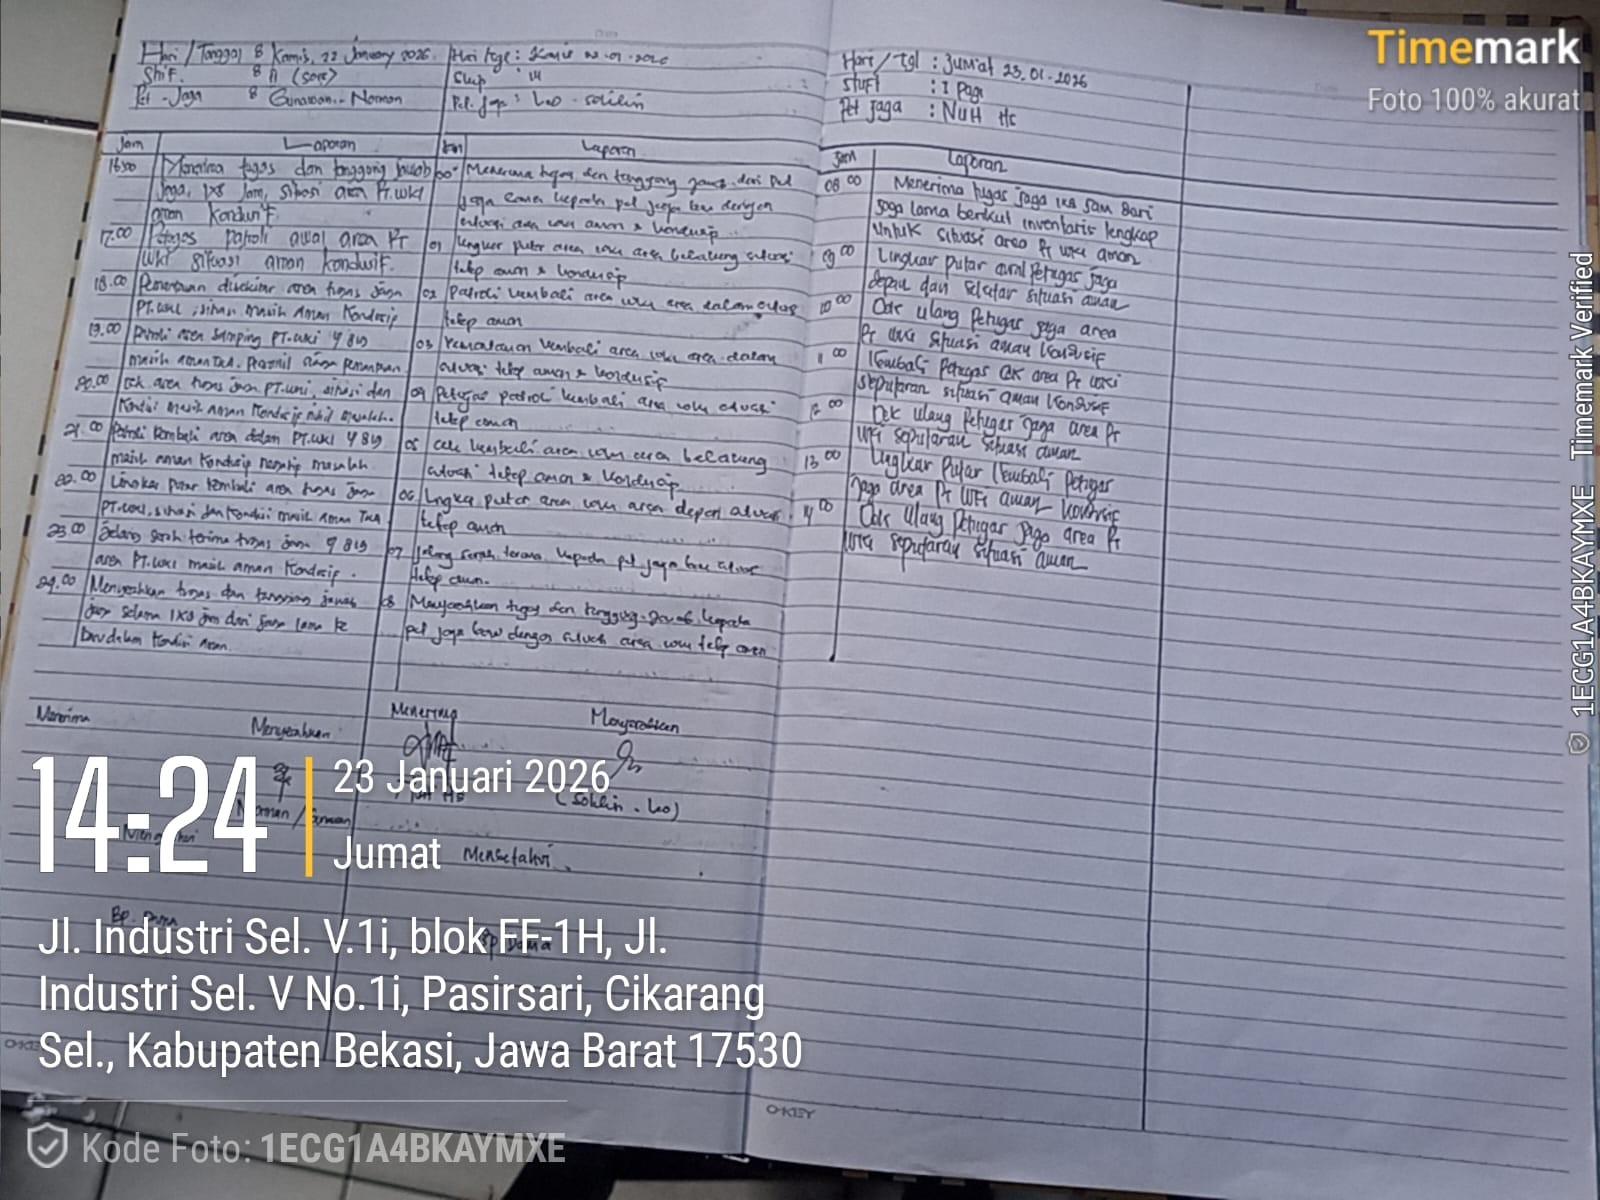 Hari / Tanggal : Kamis, 22 January 2026.
Shif. : II (sore)
Pet - Jaga : Gunawan - Norman
Jam Laporan
16.00 Menerima tugas dan tanggung jawab
Jaga, 1x8 Jam, situasi area PT. WKI
aman Kondusif.
17.00 Petugas patroli awal area PT
WKI situasi aman kondusif.
18.00 Pemantauan disekitar area tugas jaga
PT. WKI, situasi masih aman Kondusip
19.00 Patroli area samping PT. WKI
masih aman
20.00 Cek area tugas jaga PT. WKI, situasi dan
Kondisi masih aman Kondusip nihil masalah.
21.00 Patroli Kembali area dalam PT. WKI
masih aman kondusip masalah.
22.00 Lingkar putar kembali area tugas jaga
PT. WKI, situasi dan kondisi masih aman
23.00 Jelang serah terima tugas jaga
area PT. WKI masih aman Kondusip.
24.00 Menyerahkan tugas dan tanggung jawab
jaga selama 1x8 jam dari jaga lama ke
baru dalam kondisi aman.
Menerima Menyerahkan
Norman /
Hari / tgl : Kamis 22-01-2026
: III
Pet. Jaga : Leo - Solihin
Jam Laporan
Menerima tugas dan tanggung jawab dari pet
jaga lama kepada pet jaga baru dengan
situasi area WKI aman & kondusip
01 lingkar putar area WKI area belakang situasi
tetap aman & kondusip
02 Patroli kembali area WKI area dalam situasi
tetap aman
03 Pemantauan kembali area WKI area dalam
situasi tetap aman & kondusip
04 Petugas patroli kembali area WKI situasi
tetap aman
05 Cek kembali area WKI area belakang
situasi tetap aman & kondusip
06 Lingkar putar area WKI area depan situasi
tetap aman
07 jelang serah terima kepada pet jaga baru situasi
tetap aman.
08 Menyerahkan tugas dan tanggung-jawab kepada
pet jaga baru dengan situasi area WKI tetap aman
Menerima Menyerahkan
(Solihin - Leo)
Mengetahui
Hari / tgl : Jum'at 23.01-2026
Shift : I Pagi
Pet Jaga : NUH HS
Jam Laporan
08 00 Menerima tugas Jaga 1x8 Jam Dari
Jaga Lama berikut inventaris lengkap
Untuk situasi area Pt WKI aman
09 00 Lingkar Putar awal Petugas Jaga
depan dan sekitar situasi aman
10 00 Cek ulang Petugas Jaga area
Pt WKI situasi aman Kondusif
11 00 Kembali Petugas Cek area Pt WKI
seputaran situasi aman Kondusif
12 00 Cek ulang Petugas Jaga area Pt
WKI seputaran situasi aman
13 00 Lingkar Putar Kembali Petugas
Jaga area Pt WKI aman Kondusif
14 00 Cek Ulang Petugas Jaga area Pt
WKI seputaran situasi aman
O-KEY
Timemark
Foto 100% akurat
14:24
23 Januari 2026
Jumat
Jl. Industri Sel. V.1i, blok FF-1H, Jl.
Industri Sel. V No.1i, Pasirsari, Cikarang
Sel., Kabupaten Bekasi, Jawa Barat 17530
Kode Foto: 1ECG1A4BKAYMXE
1ECG1A4BKAYMXE Timemark Verified